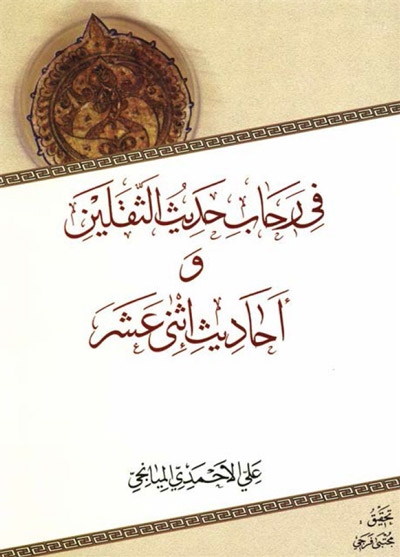 فِي رِحَابِ حَدِيثِ الثَّقَلَيْنِ
وَ
أَحَادِيثِ اثْنَى عَشَرَ
عَلِي الأَحْمَدِي المِيَانَجِي
تحقيق :
مجتبى فرجي